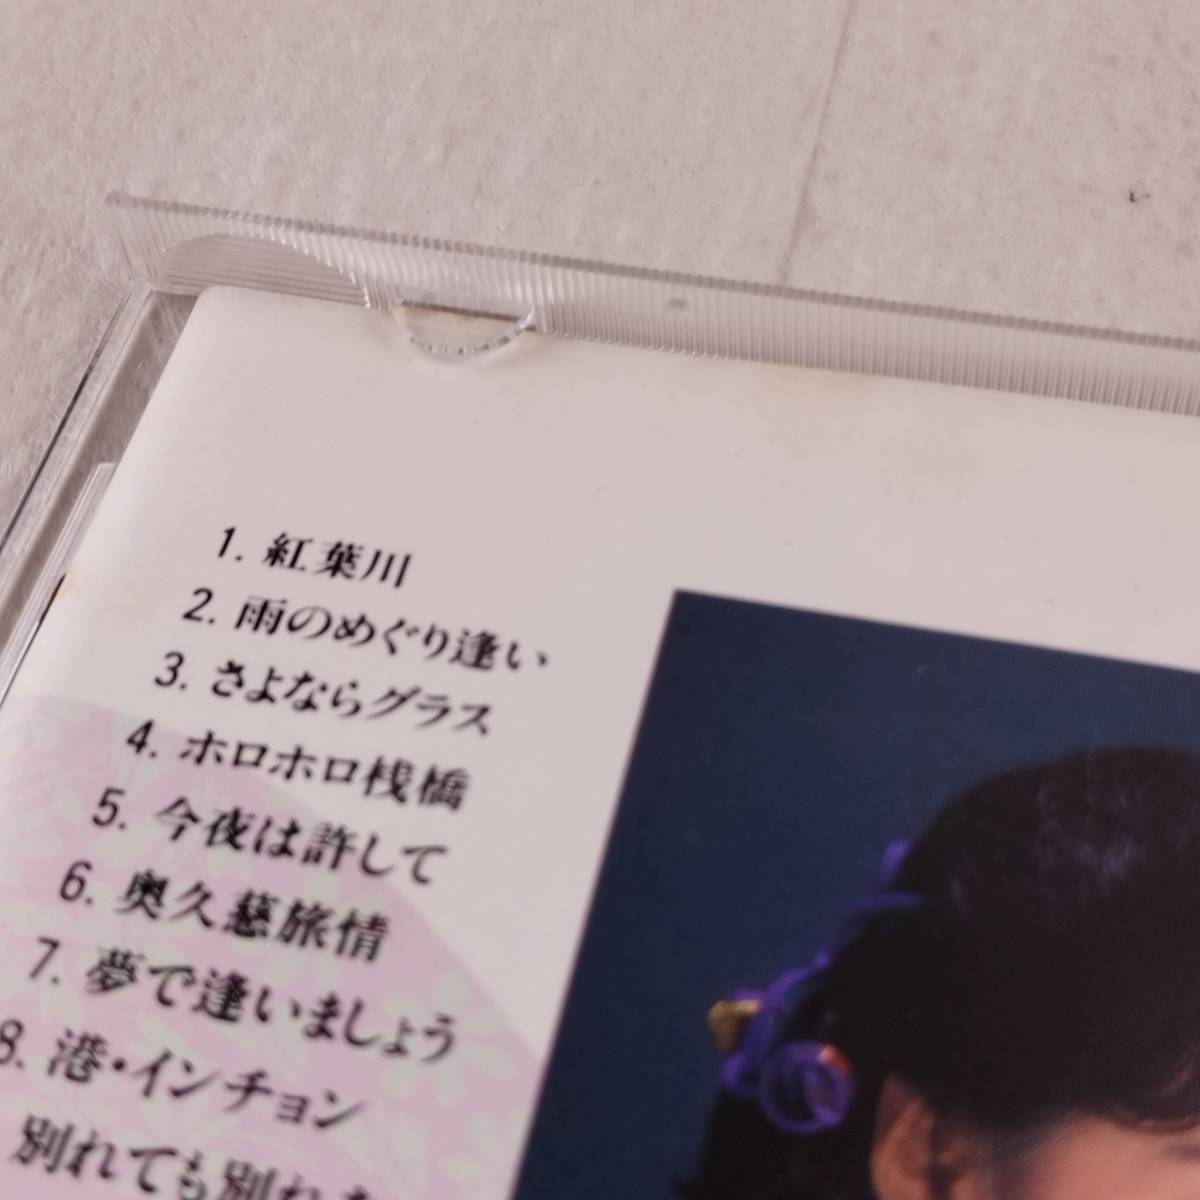 1. 紅葉川
2. 雨のめぐり逢い
3. さよならグラス
4. ホロホロ桟橋
5. 今夜は許して
6. 奥久慈旅情
7. 夢で逢いましょう
8. 港・インチョン
別れても別れ